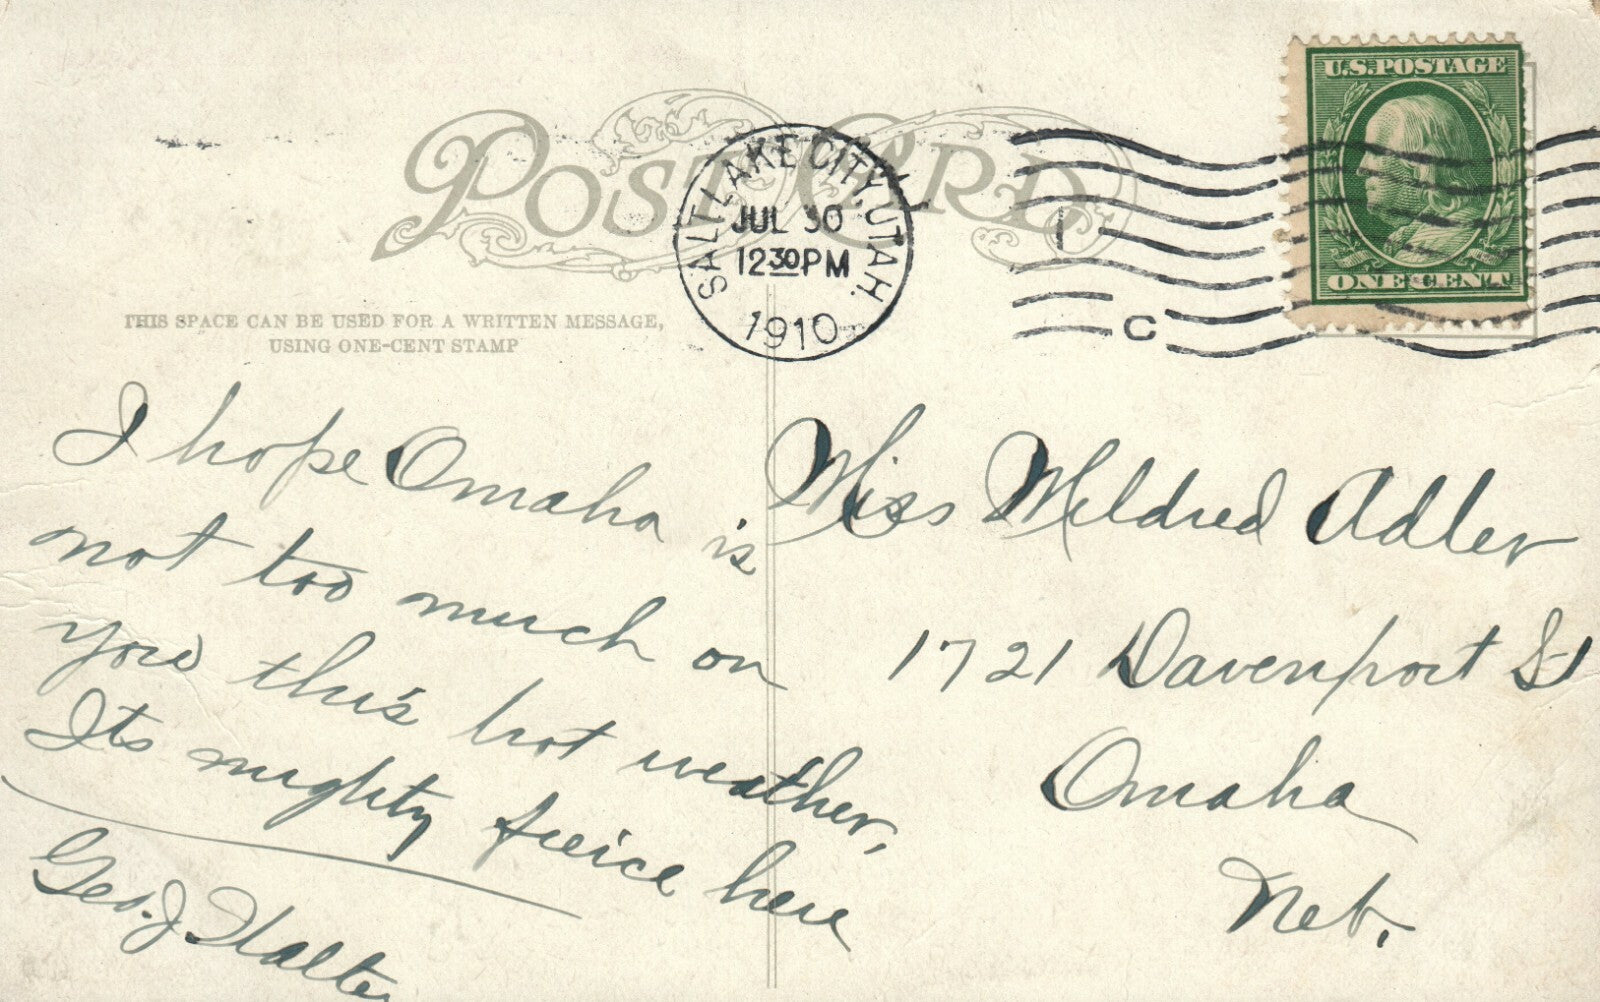 POST CARD
U.S. POSTAGE
ONE CENT
SALT LAKE CITY, UTAH.
JUL 30
12 30 PM
1910
C
THIS SPACE CAN BE USED FOR A WRITTEN MESSAGE,
USING ONE-CENT STAMP
I hope Omaha is
not too much on
you this hot weather,
Its mighty here
Geo. J. Walter
Miss Mildred Adler
1721 Davenport St
Omaha
Neb.